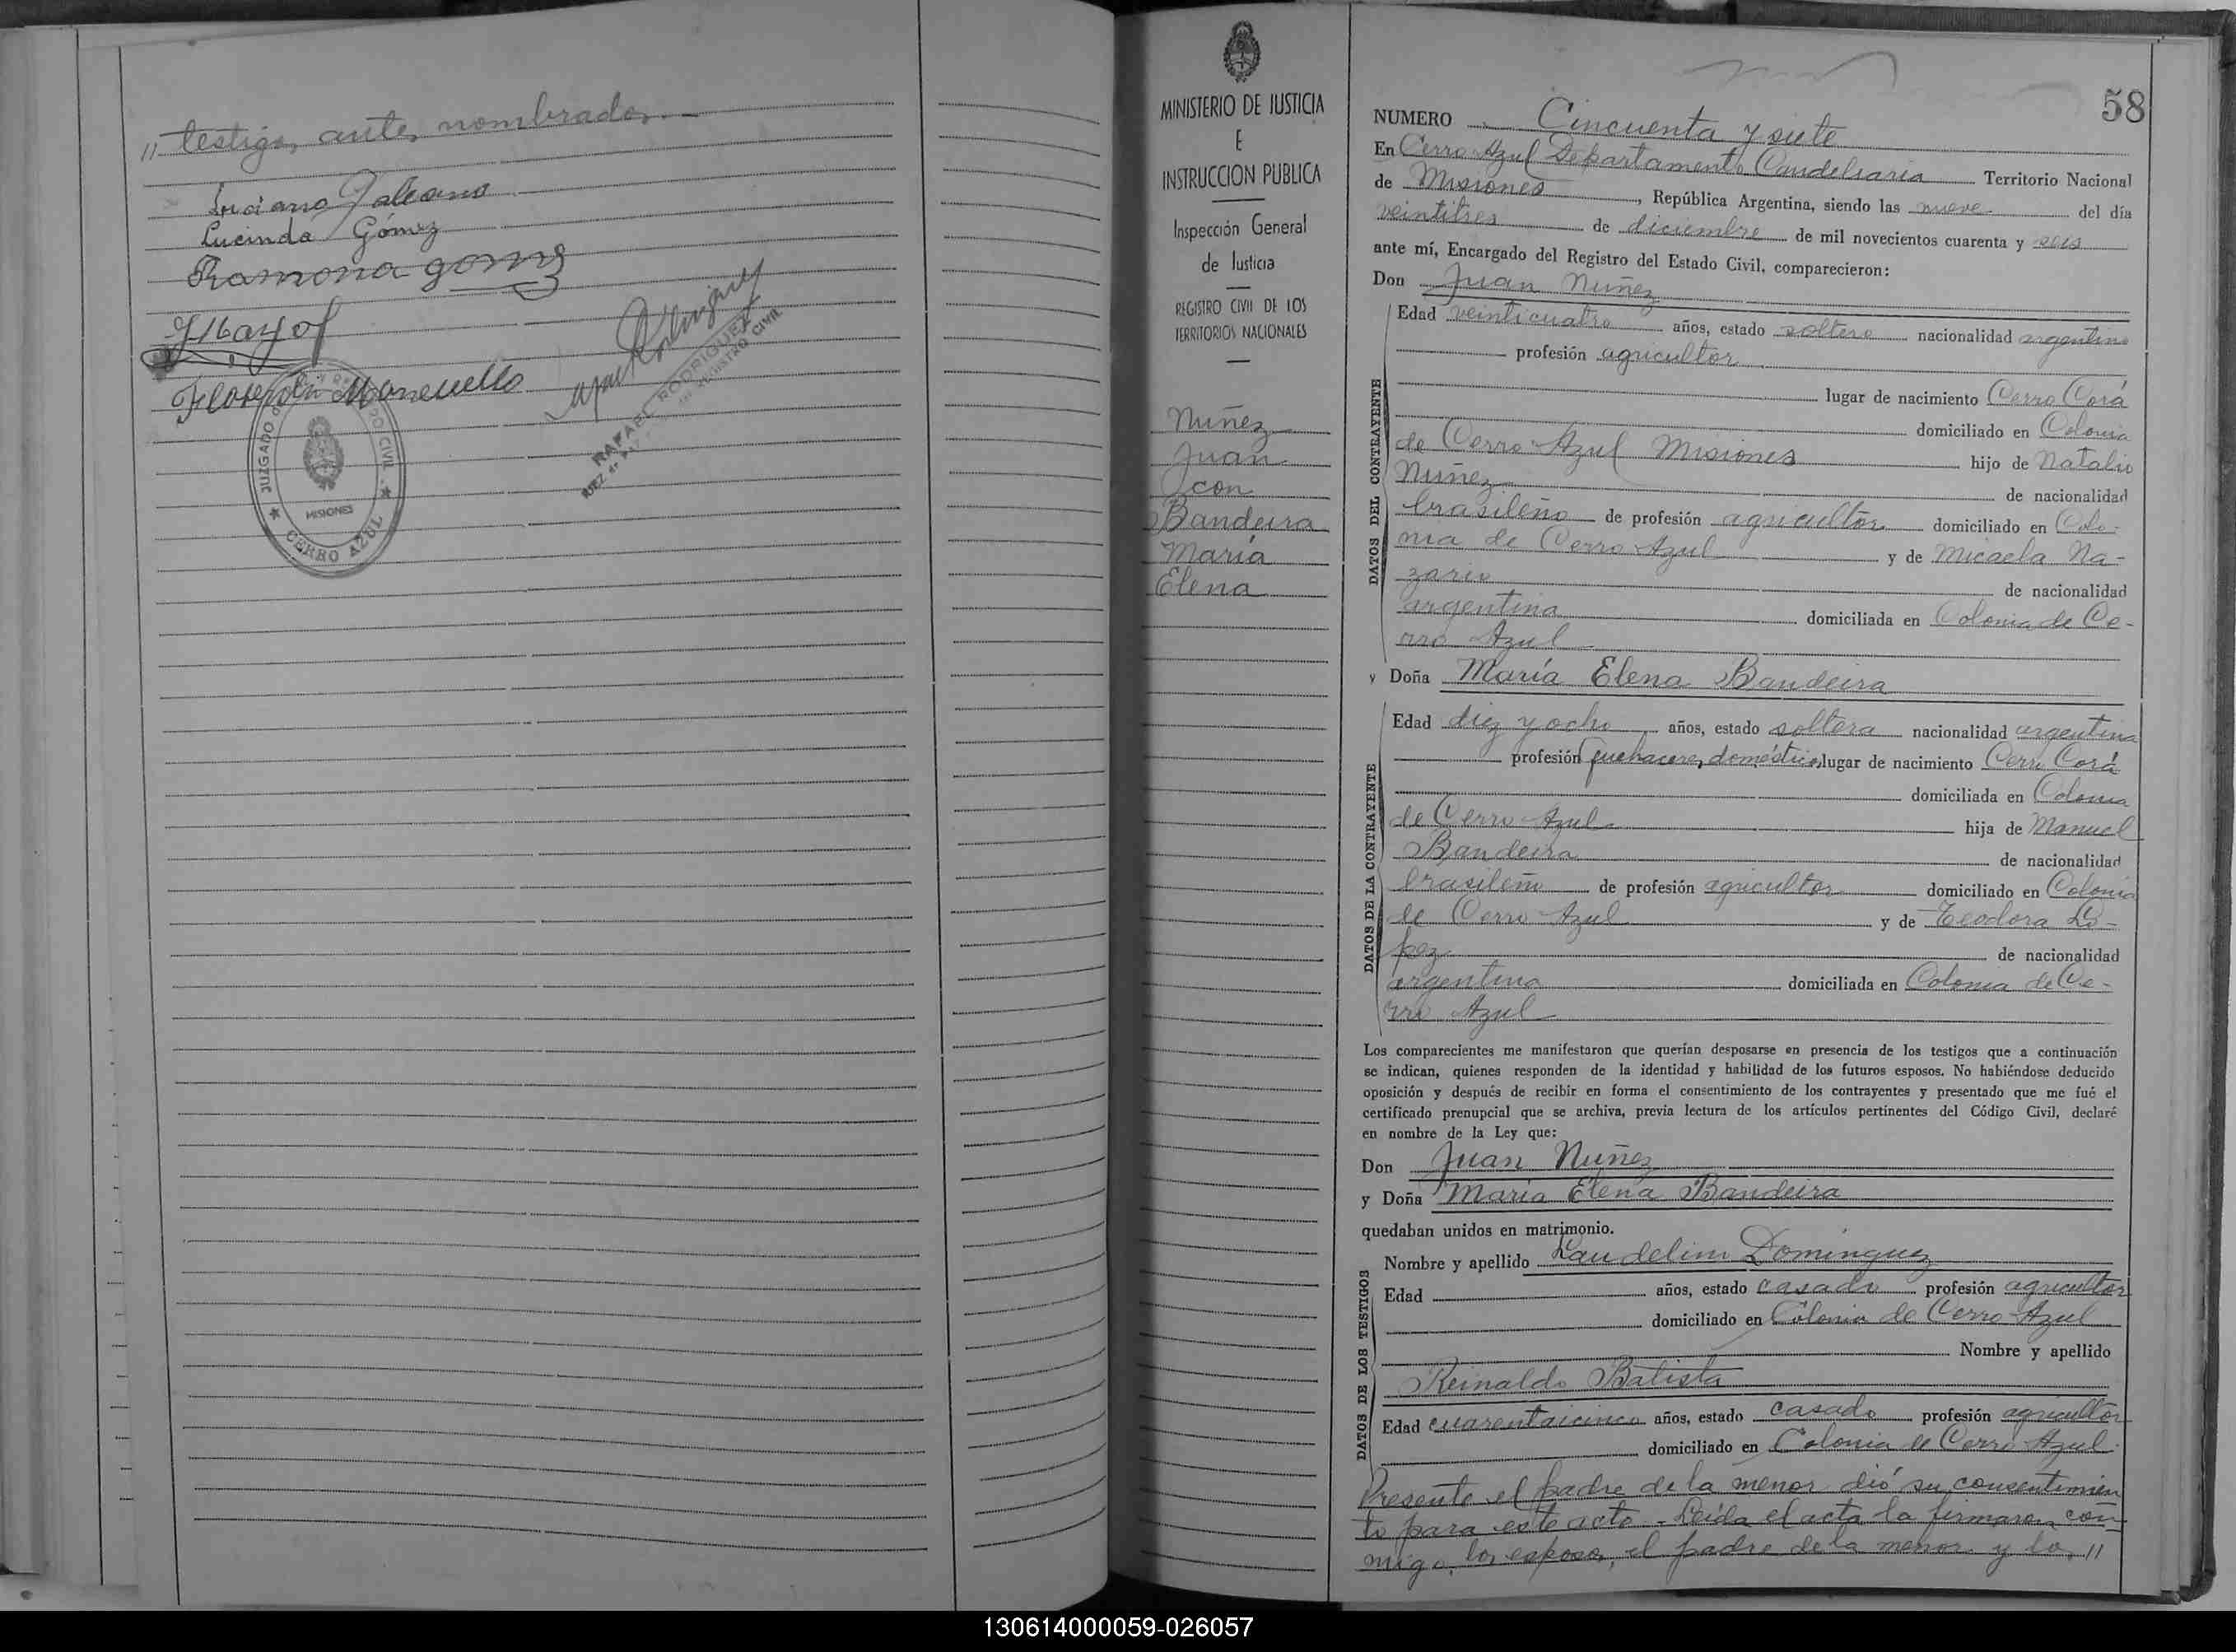 " testigos antes nombrados.—
Luciano Galeano
Lucinda Gómez
Ramona gomez
Florentin
JUZGADO DE PAZ Y REGISTRO CIVIL
MISIONES
CERRO AZUL
RAFAEL RODRIGUEZ
JUEZ de PAZ
REGISTRO CIVIL
MINISTERIO DE JUSTICIA
E
INSTRUCCION PUBLICA
Inspección General
de Justicia
REGISTRO CIVIL DE LOS
TERRITORIOS NACIONALES
Nuñez
Juan
con
Bandeira
María
Elena
58
NUMERO Cincuenta y siete
En Cerro Azul Departamento Candelaria Territorio Nacional
de Misiones, República Argentina, siendo las nueve del día
veintitres de diciembre de mil novecientos cuarenta y seis
ante mí, Encargado del Registro del Estado Civil, comparecieron:
Don Juan Nuñez
DATOS DEL CONTRAYENTE
Edad veinticuatro años, estado soltero nacionalidad argentino
profesión agricultor
lugar de nacimiento Cerro Corá
domiciliado en Colonia
de Cerro Azul Misiones hijo de Natalio
Nuñez de nacionalidad
brasileño de profesión agricultor domiciliado en Colo-
nia de Cerro Azul y de Micaela Na-
zario de nacionalidad
argentina domiciliada en Colonia de Ce-
rro Azul
y Doña María Elena Bandeira
DATOS DE LA CONTRAYENTE
Edad diez y ocho años, estado soltera nacionalidad argentina
profesión quehaceres domésticos lugar de nacimiento Cerro Corá
domiciliada en Colonia
de Cerro Azul hija de Manuel
Bandeira de nacionalidad
brasileño de profesión agricultor domiciliado en Colonia
de Cerro Azul y de Teodora Ló-
pez de nacionalidad
argentina domiciliada en Colonia de Ce-
rro Azul
Los comparecientes me manifestaron que querían desposarse en presencia de los testigos que a continuación
se indican, quienes responden de la identidad y habilidad de los futuros esposos. No habiéndose deducido
oposición y después de recibir en forma el consentimiento de los contrayentes y presentado que me fué el
certificado prenupcial que se archiva, previa lectura de los artículos pertinentes del Código Civil, declaré
en nombre de la Ley que:
Don Juan Nuñez
y Doña María Elena Bandeira
quedaban unidos en matrimonio.
DATOS DE LOS TESTIGOS
Nombre y apellido Laudelino Dominguez
Edad años, estado casado profesión agricultor
domiciliado en Colonia de Cerro Azul
Nombre y apellido
Reinaldo Batista
Edad cuarentaicinco años, estado casado profesión agricultor
domiciliado en Colonia de Cerro Azul
Presente el padre de la menor dió su consentimien
to para este acto - Leída el acta la firmaron con-
migo, los esposos, el padre de la menor y los "
130614000059-026057